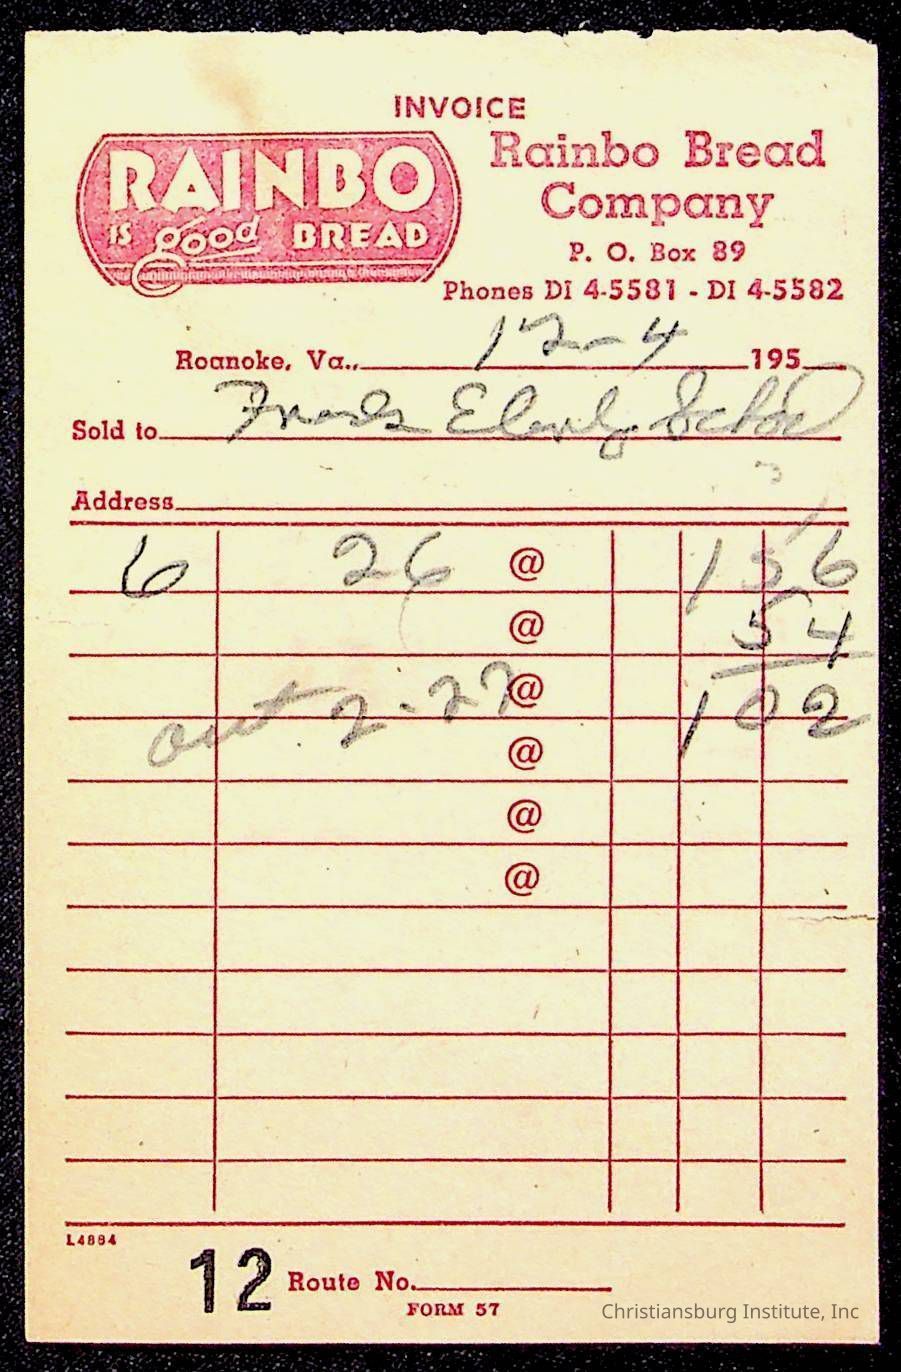 INVOICE
RAINBO
IS good BREAD
Rainbo Bread
Company
P. O. Box 89
Phones DI 4-5581 - DI 4-5582
Roanoke, Va., 12-4 195
Sold to
Address
6 26 @ 156
@ 54
out 2-27 @ 102
@
@
@
L4884
12 Route No.
FORM 57
Christiansburg Institute, Inc